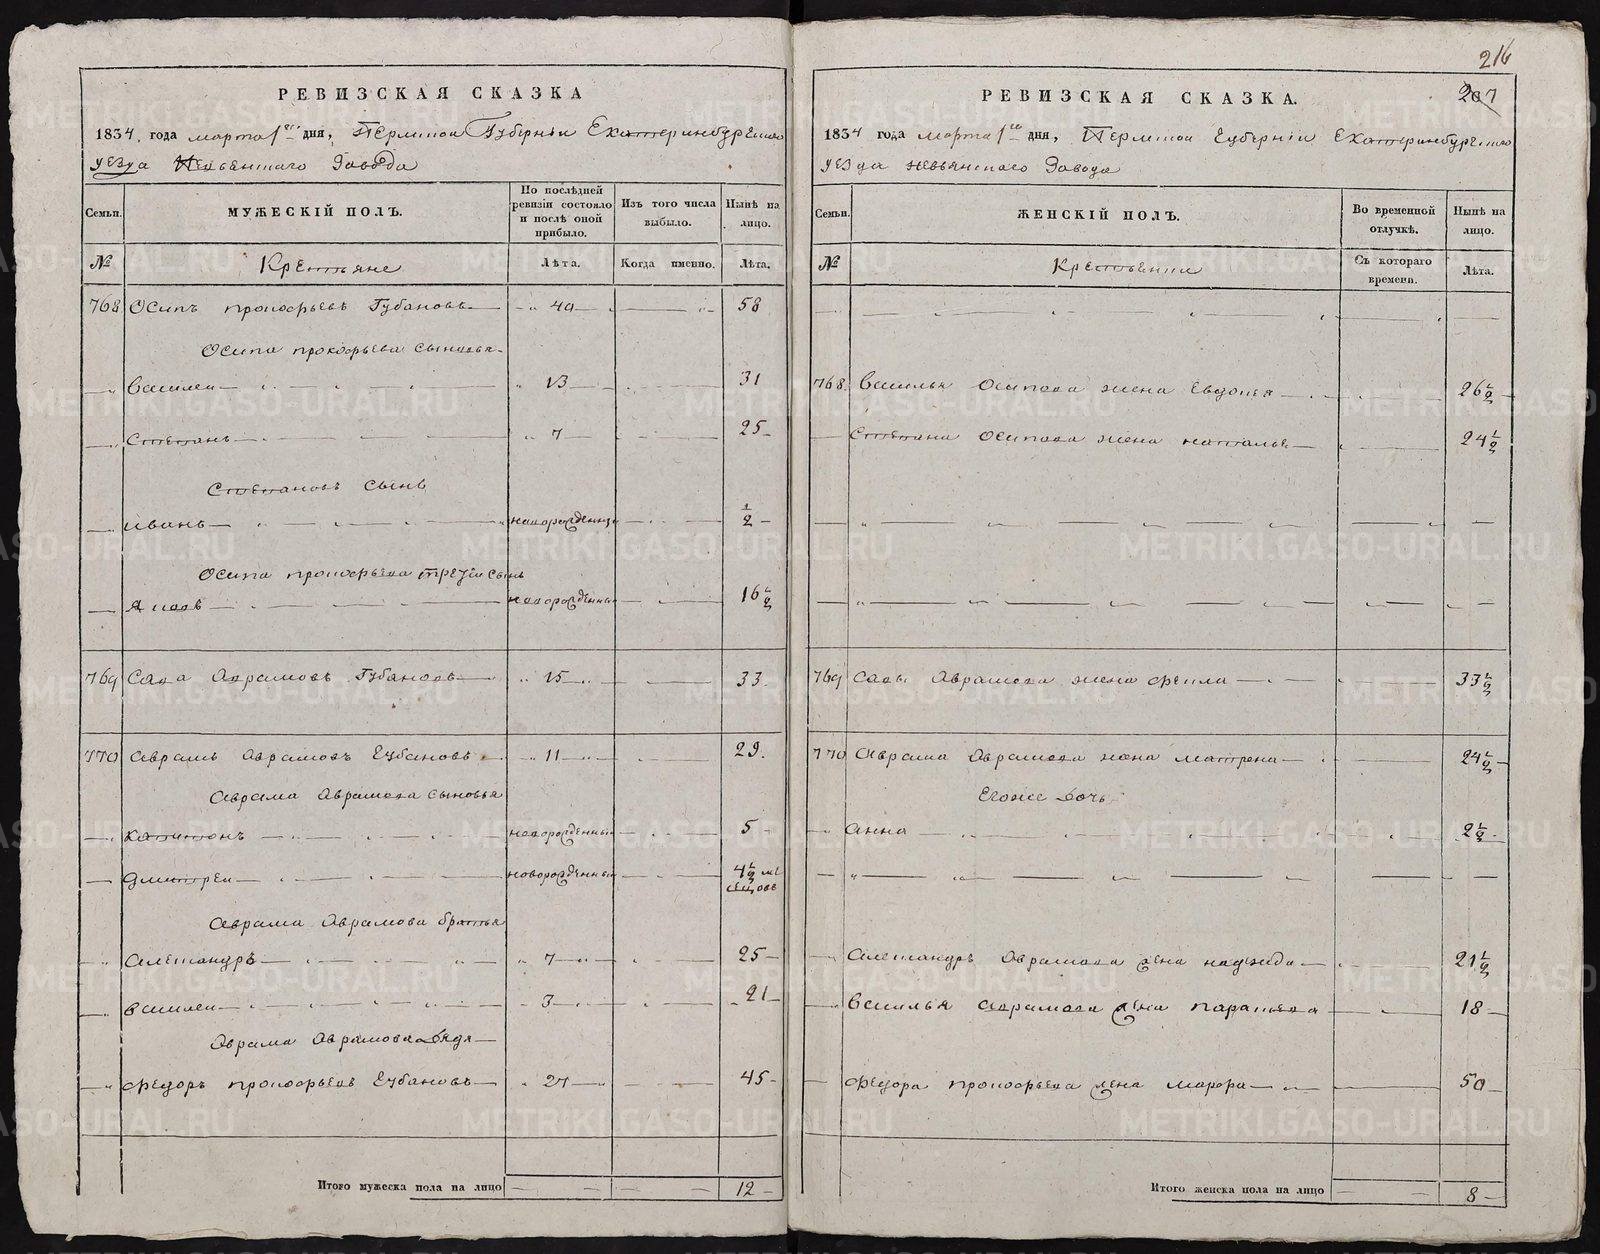 216
207
РЕВИЗСКАЯ СКАЗКА
1834 года марта 1го дня, Пермской Губерніи Екатеринбургскаго
уезда Невьянскаго Завода
Семьи. МУЖЕСКІЙ ПОЛЪ. По послѣдней ревизіи состояло и послѣ оной прибыло. Изъ того числа выбыло. Нынѣ на лицо.
№ Крестьяне Лѣта. Когда именно. Лѣта.
768 Осипъ прокофьевъ Губановъ 40 58
Осипа прокофьева сыновья
Василеи 13 31
Степанъ 7 25
Степановъ сынъ
иванъ новорожденны 1/2
Осипа прокофьева третеи сынъ
Яковъ новорожденны 16 1/2
769 Сава Аврамовъ Губановъ 15 33
770 Аврамъ Аврамовъ Губановъ 11 29
Аврама Аврамова сыновья
капитонъ новорожденны 5
дмитреи новорожденны 4 1/2 ме
сецовъ
Аврама Аврамова братья
Александръ 7 25
василеи 3 21
Аврама Аврамова дядя
Федоръ прокофьевъ Губановъ 27 45
Итого мужеска пола на лицо 12
РЕВИЗСКАЯ СКАЗКА.
1834 года марта 1го дня, Пермской Губерніи Екатеринбургскаго
уезда невьянскаго Завода
Семьи. ЖЕНСКІЙ ПОЛЪ. Во временной отлучкѣ. Нынѣ на лицо.
№ Съ котораго времени. Лѣта.
768 Василья Осипова жена Евдокея 26 1/2
Степана Осипова жена наталья 24 1/2
769 Савы Аврамова жена Фекла 33 1/2
770 Аврама Аврамова жена матрена 24 1/2
Егоже дочь
анна 2 1/2
Александръ Аврамова жена надежда 21 1/2
Василья Аврамова жена парасковья 18
Федора прокофьева жена марфа 50
Итого женска пола на лицо 8
METRIKI.GASO-URAL.RU